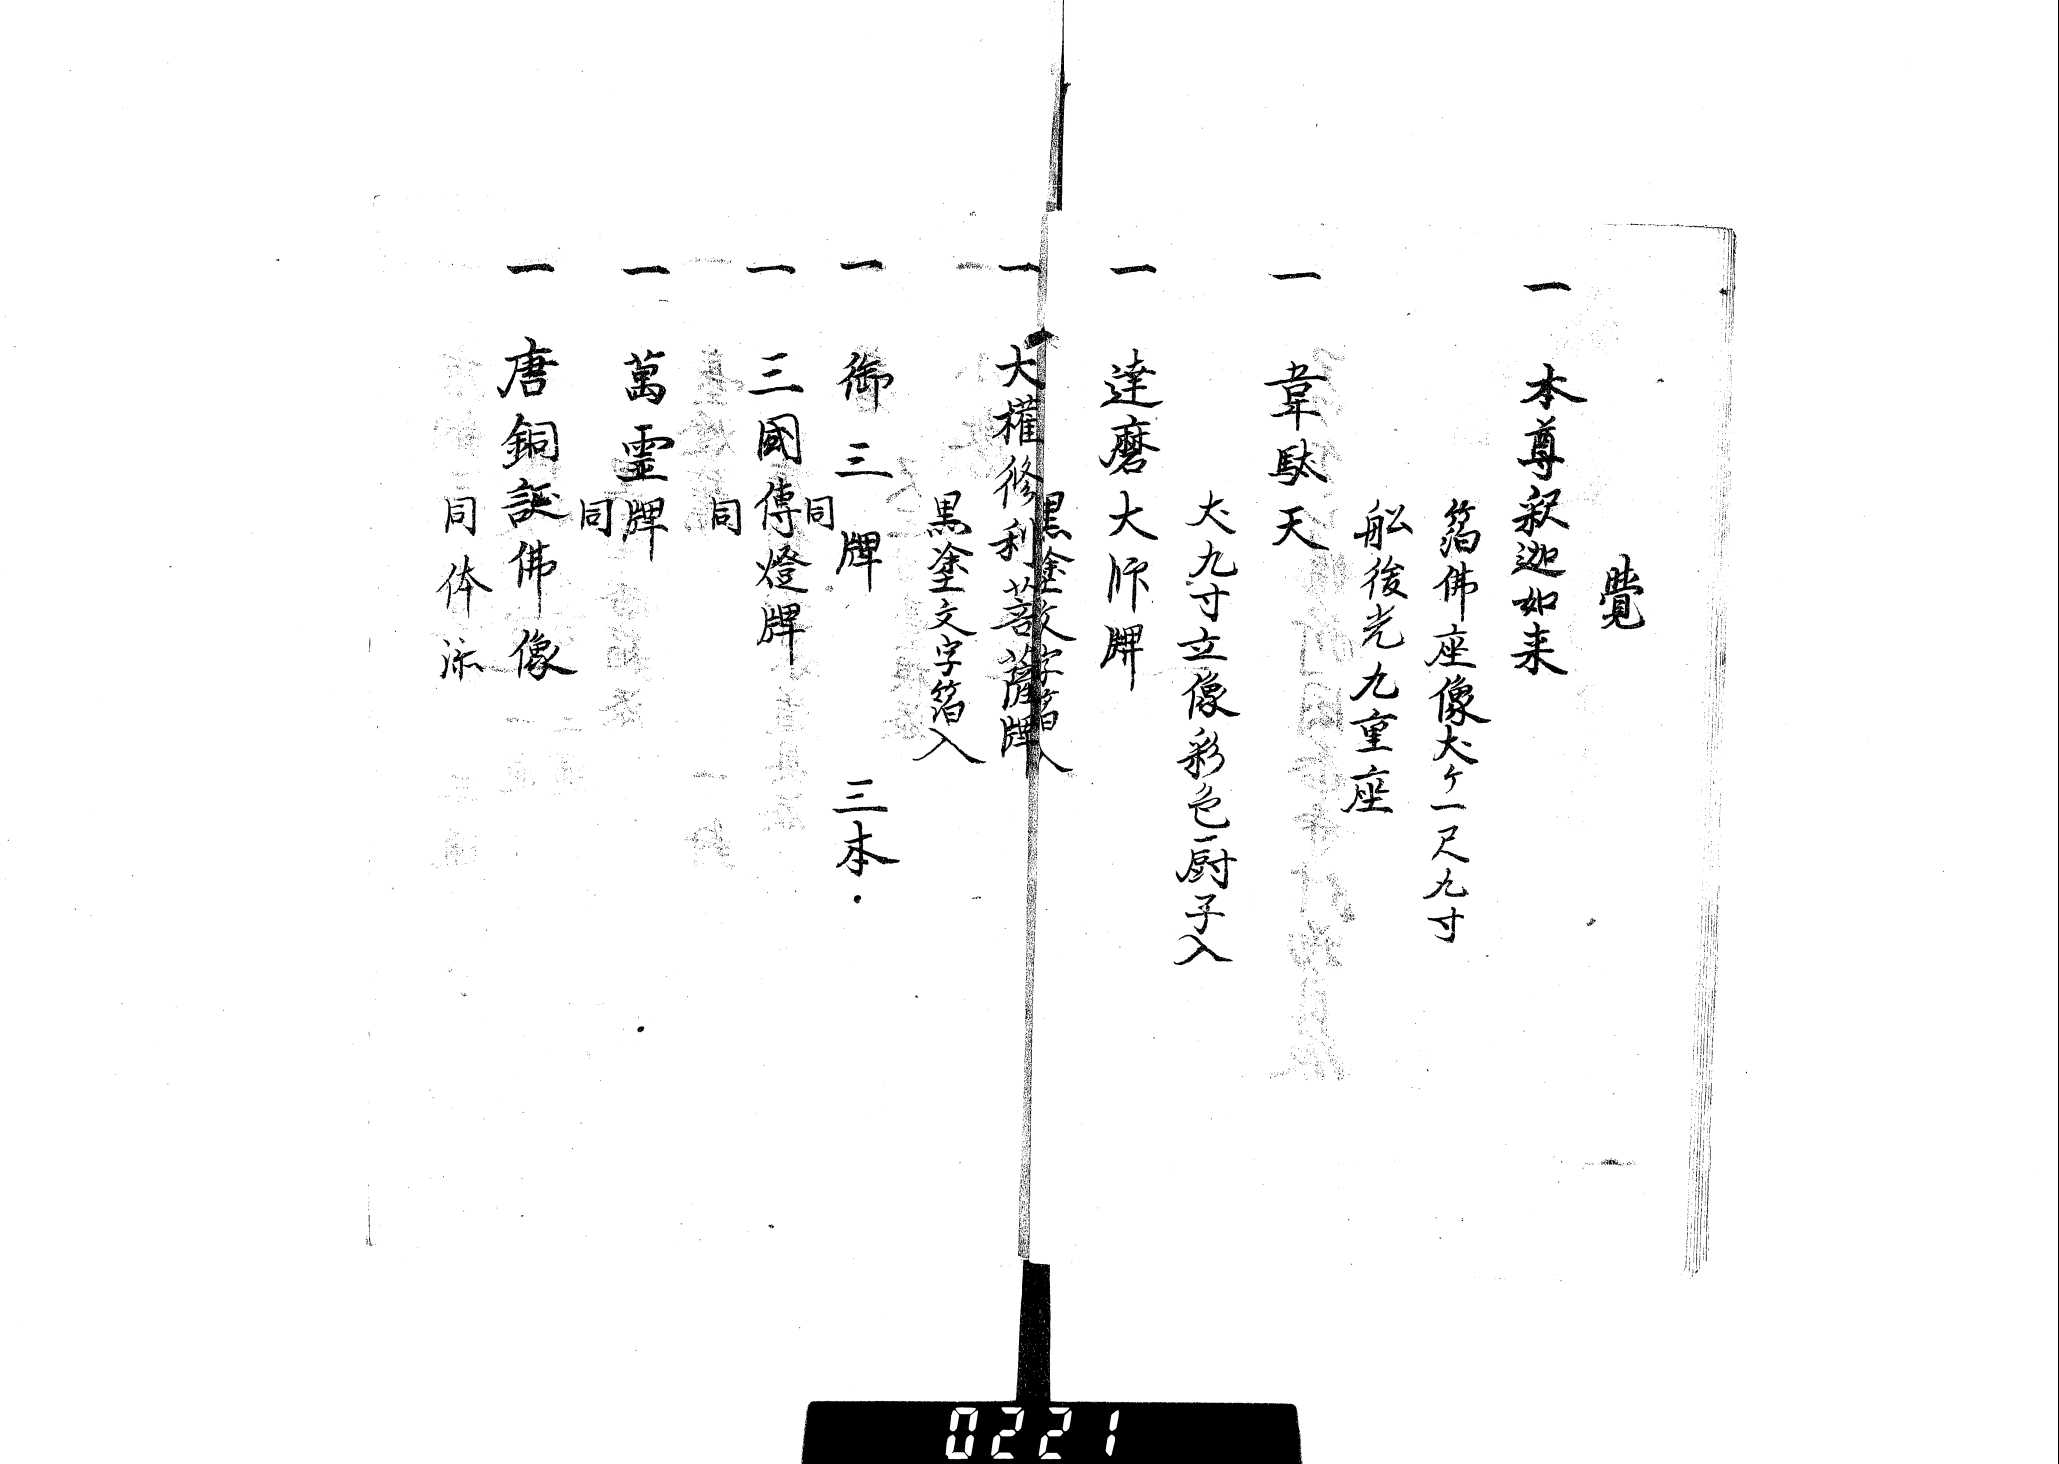 覺
一 本尊釈迦如来
箔佛座像大ケ一尺九寸
舩後光九重座
一 韋駄天
大九寸立像彩色厨子入
一 達磨大師牌
黒塗文字箔入
一 大權修利菩薩牌
黒塗文字箔入
一 御三牌 三本
同
一 三國傳燈牌
同
一 萬霊牌
同
一 唐銅誕佛像
同体
0221